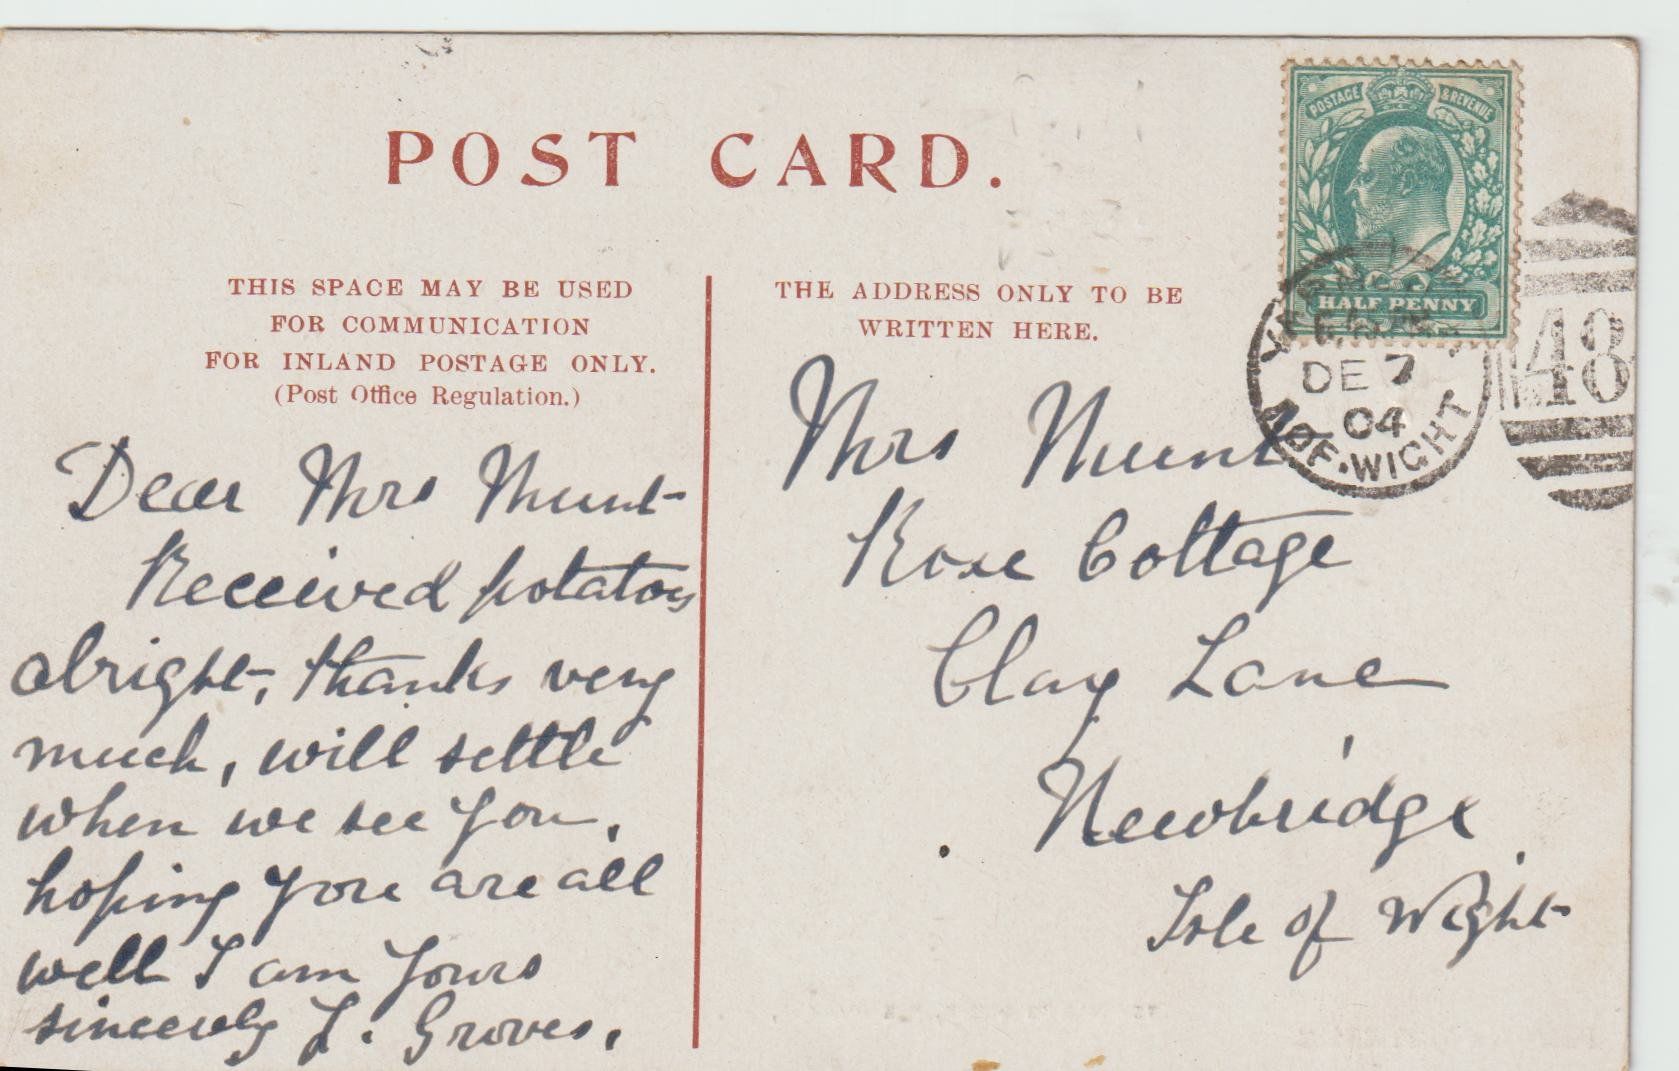 POST CARD.
THIS SPACE MAY BE USED
FOR COMMUNICATION
FOR INLAND POSTAGE ONLY.
(Post Office Regulation.)
Dear Mrs Munt
Received potatoes
alright, thanks very
much, will settle
when we see you,
hoping you are all
well I am yours
sincerely L. Groves.
THE ADDRESS ONLY TO BE
WRITTEN HERE.
Mrs Munt
Rose Cottage
Clay Lane
Newbridge
Isle of Wight
POSTAGE & REVENUE
HALF PENNY
DE 7
04
I.OF.WIGHT
48